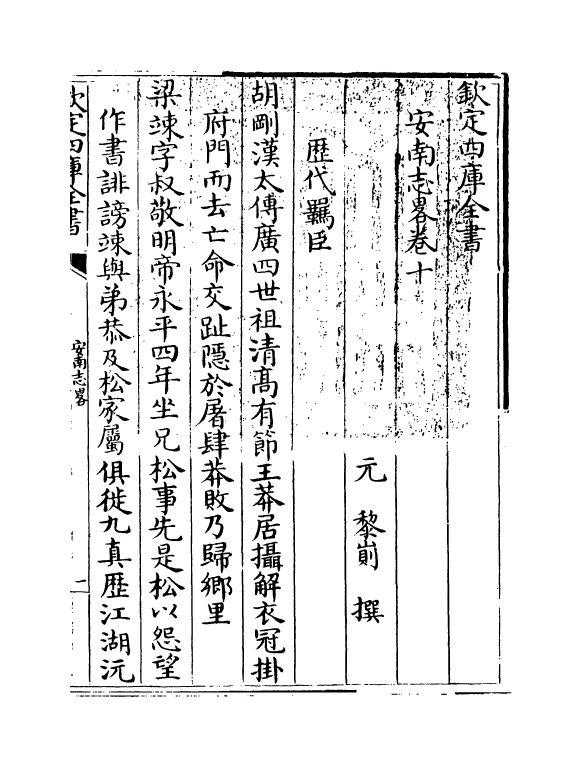 欽定四庫全書
安南志畧卷十
元　黎崱　撰
歷代羈臣
胡剛漢太傅廣四世祖清髙有節王莽居攝解衣冠掛
府門而去亡命交趾隱於屠肆莽敗乃歸鄉里
梁竦字叔敬明帝永平四年坐兄松事先是松以怨望
作書誹謗竦與弟恭及松家屬俱徙九真歷江湖沅
欽定四庫全書
安南志畧